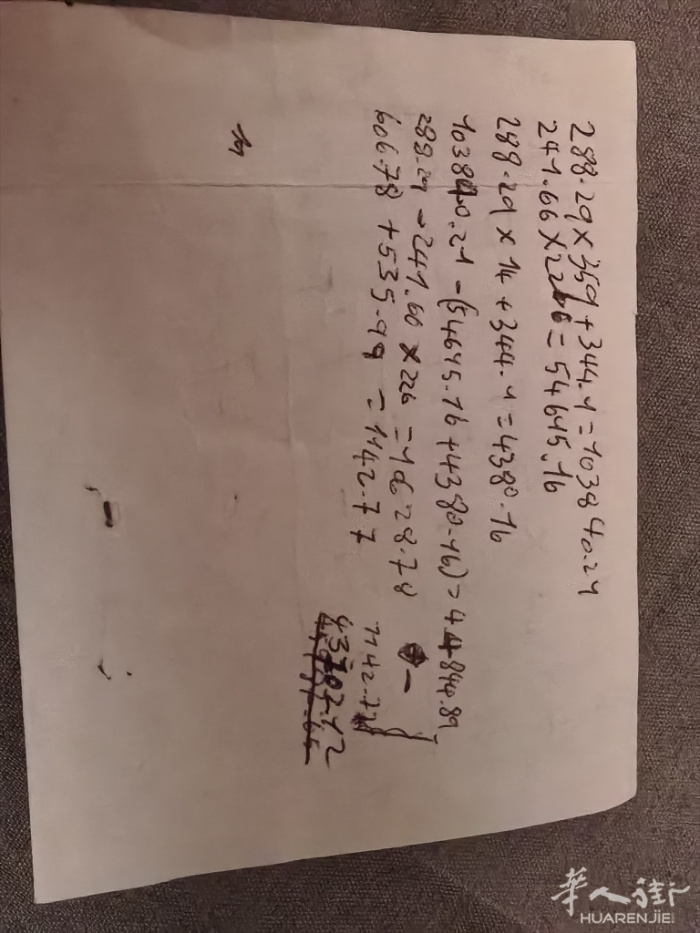 288.29×359+344.1=103840.21
241.66×226=54615.16
288.29×14+344.1=4380.16
103840.21-(54615.16+4380.16)=44844.89
288.29-241.60×226=10528.78
606.78+535.99=1142.77
1142.77
43702.12
14
華人街
HUARENJIE